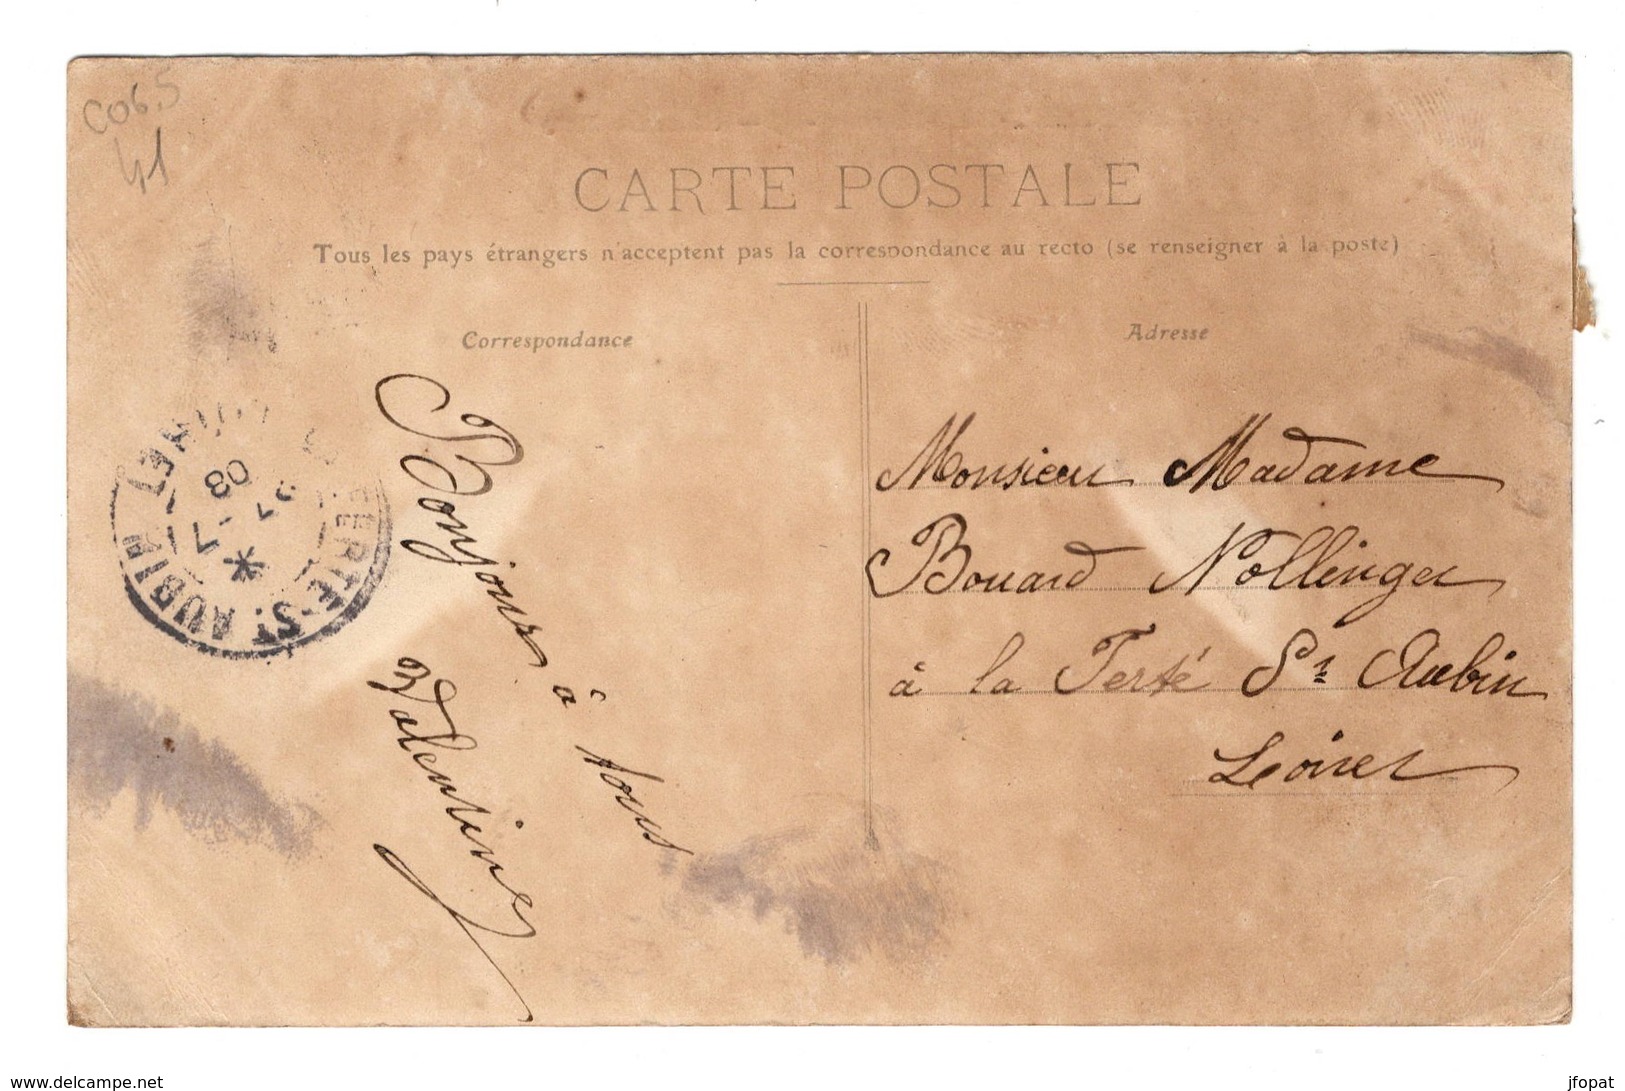 C065
41
CARTE POSTALE
Tous les pays étrangers n'acceptent pas la correspondance au recto (se renseigner à la poste)
Correspondance
Adresse
Bonjour à tous
Valentine
Monsieur Madame
Bouard Nollinger
à la Ferté St Aubin
Loiret
FERTE-ST. AUBIN
7
08
www.delcampe.net
jfopat